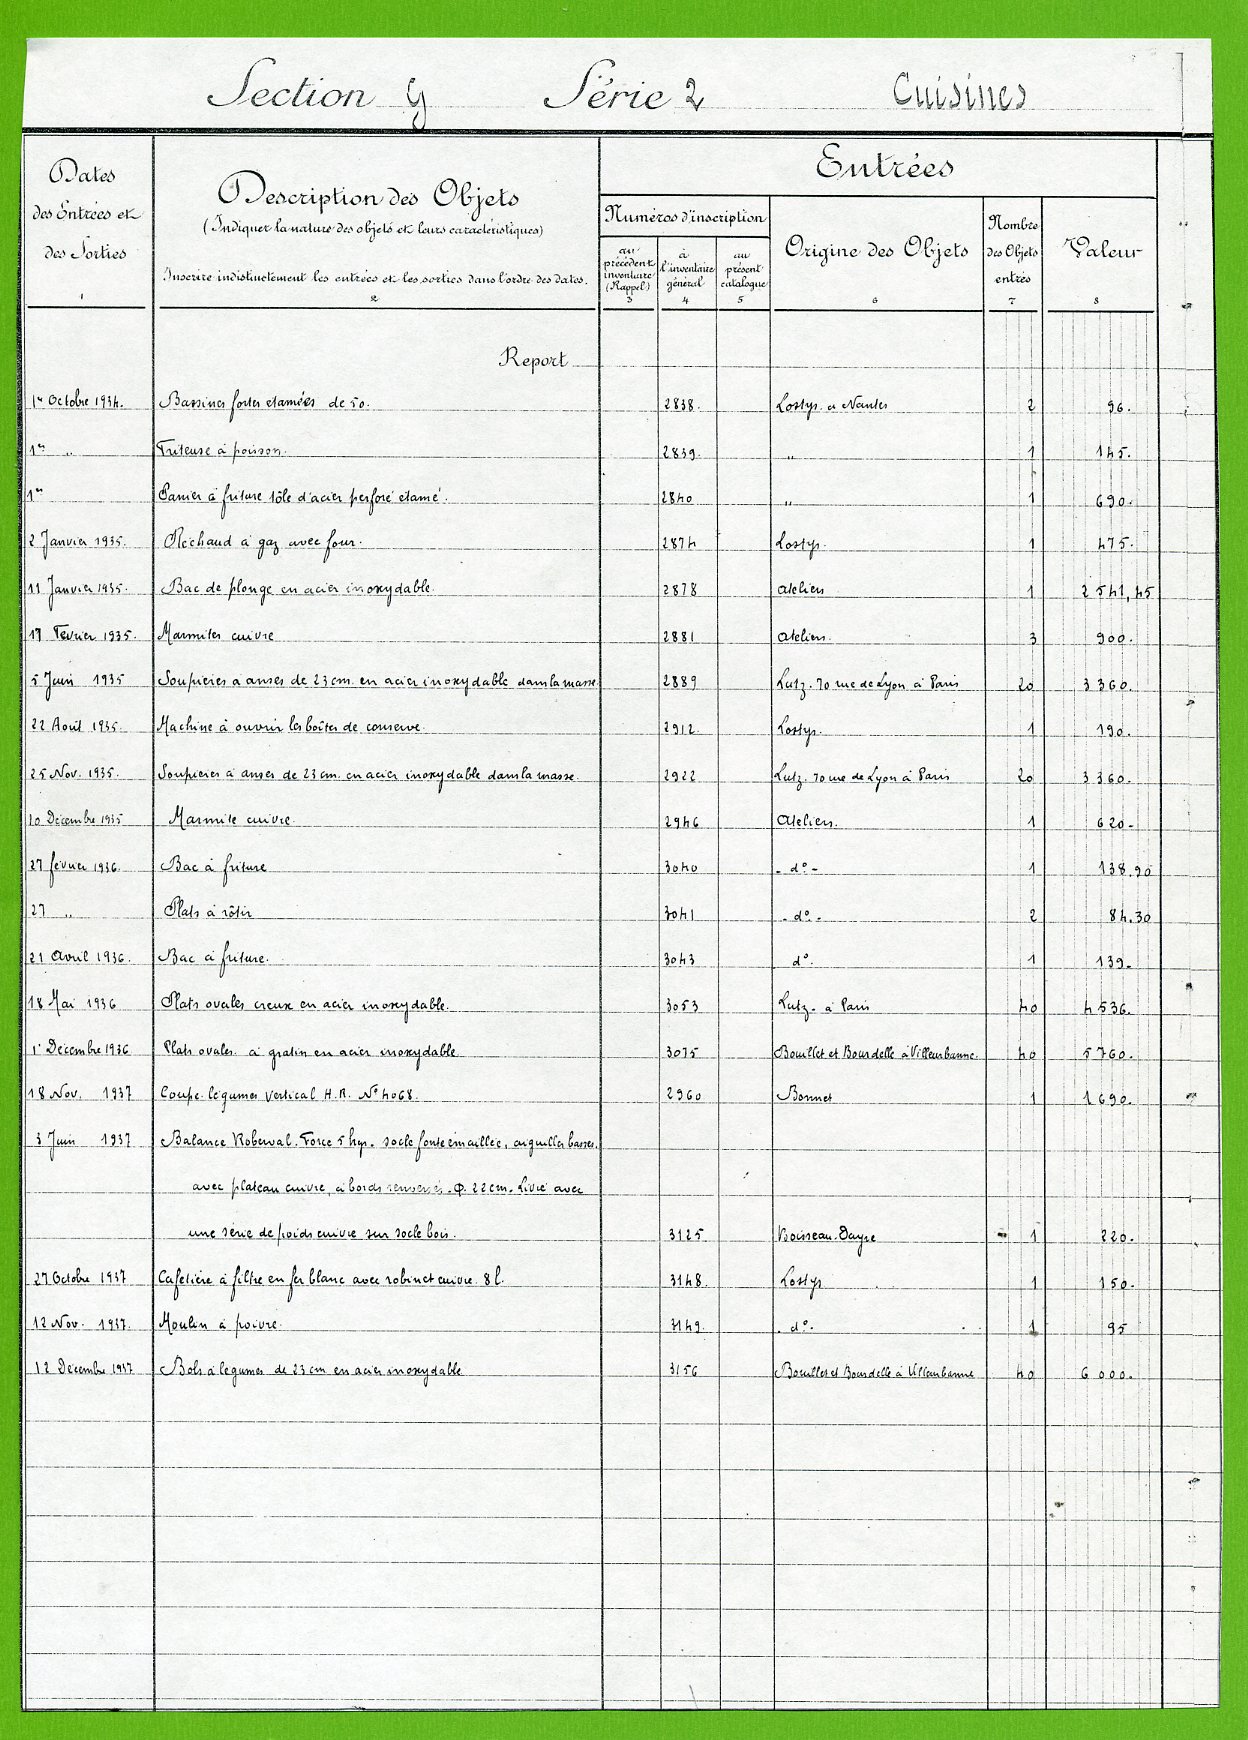 Section G Série 2 Cuisines
Dates
des Entrées et
des Sorties
1
Description des Objets
(Indiquer la nature des objets et leurs caractéristiques)
Inscrire indistinctement les entrées et les sorties dans l'ordre des dates.
2
Entrées
Numéros d'inscription
au
précédent
inventaire
(Rappel)
3
à
l'inventaire
général
4
au
présent
catalogue
5
Origine des Objets
6
Nombre
des Objets
entrés
7
Valeur
8
Report
1er Octobre 1934. Bassines fortes etamées de 50. 2838. Lostys. a Nantes 2 96.
1er " Friteuse à poisson. 2839. " 1 145.
1er Panier à friture tôle d'acier perforé etamé. 2840 " 1 690.
2 Janvier 1935. Réchaud à gaz avec four. 2874 Lostys. 1 475.
11 Janvier 1935. Bac de plonge en acier inoxydable. 2878 Ateliers 1 2541,45
17 Février 1935. Marmites cuivre 2881 Ateliers. 3 900.
5 Juin 1935 Soupières à anses de 23 cm. en acier inoxydable dans la masse. 2889 Lutz. 70 rue de Lyon à Paris 20 3360.
22 Août 1935. Machine à ouvrir les boîtes de conserve. 2912. Lostys. 1 190.
25 Nov. 1935. Soupières à anses de 23 cm. en acier inoxydable dans la masse. 2922 Lutz. 70 rue de Lyon à Paris 20 3360.
10 Décembre 1935 Marmite cuivre. 2946 Ateliers. 1 620.
27 février 1936. Bac à friture 3040 - d° - 1 138.90
27 " Plats à rôtir 3041 - d° - 2 84.30
21 Avril 1936. Bac à friture. 3043 d°. 1 139.
18 Mai 1936 Plats ovales creux en acier inoxydable. 3053 Lutz. à Paris 40 4536.
1er Décembre 1936 Plats ovales à gratin en acier inoxydable 3075 Bouillet et Bourdelle à Villeurbanne. 40 5760.
18 Nov. 1937 Coupe-légumes vertical H.R. N° 4068. 2960 Bonnet 1 1690.
3 Juin 1937 Balance Roberval. Force 5 kgs. socle fonte émaillée, aiguilles basses.
avec plateau cuivre, à bords renversés. Φ. 22 cm. Livré avec
une série de poids cuivre sur socle bois. 3125 Boisseau. 1 220.
27 Octobre 1937 Cafetière à filtre en fer blanc avec robinet cuivre 8 l. 3148. Lostys 1 150.
12 Nov. 1937. Moulin à poivre. 3149. d°. 1 95
12 Décembre 1937 Bols à légumes de 23 cm en acier inoxydable 3156 Bouillet et Bourdelle à Villeurbanne 40 6000.